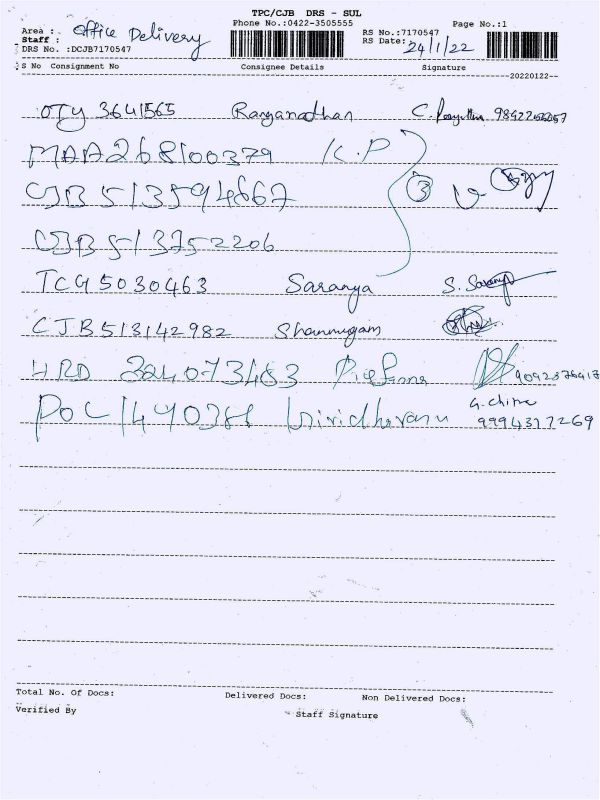 TPC/CJB DRS - SUL
Phone No.:0422-3505555
Page No.:1
Area : Office Delivery
Staff :
DRS No. :DCJB7170547
RS No.:7170547
RS Date: 24/1/22
S No Consignment No Consignee Details Signature
20220122
OTY 3641565 Ranganadhan
MAA268100379 K.P
CJB513594667 3
CJB513752206
TCG5030463 Saranya S. Saranya
CJB513142982 Shanmugam
HRD
POC
9994377269
Total No. Of Docs: Delivered Docs: Non Delivered Docs:
Verified By Staff Signature